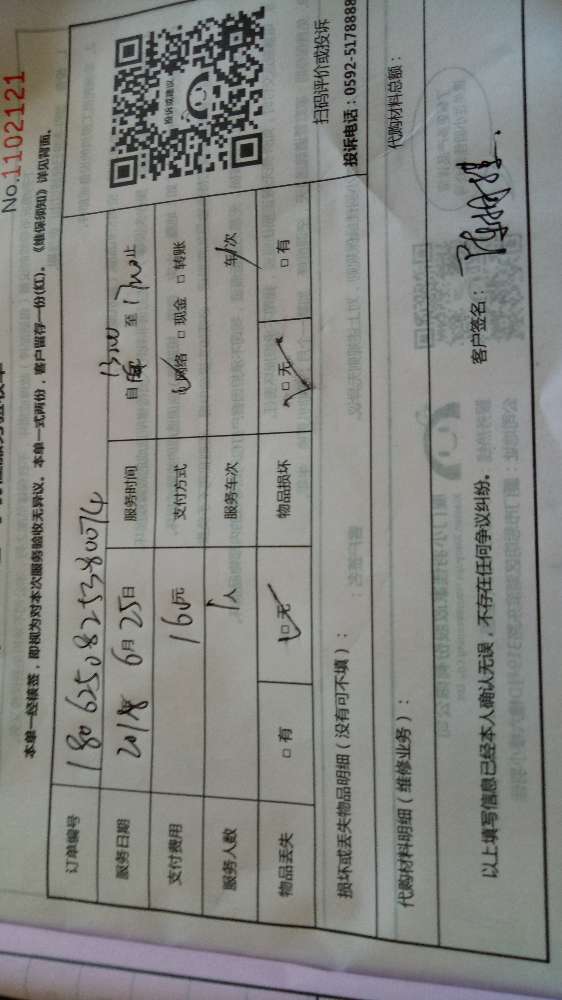 No.1102121
本单一经核签，即视为对本次服务验收无异议。本单一式两份，客户留存一份(红)。《维保须知》详见背面。
订单编号 1806250825380074
服务日期 2018年 6月 25日 服务时间 自 13:00 至 17:00止
支付费用 160元 支付方式 ☑网络 □现金 □转账
服务人数 1人 服务车次 车/次
物品丢失 □有 ☑无 物品损坏 ☑无 □有
投诉或建议
扫码评价或投诉
投诉电话：0592-5178888
损坏或丢失物品明细（没有可不填）：
代购材料明细（维修业务）： 代购材料总额：
以上填写信息已经本人确认无误，不存在任何争议纠纷。 客户签名：